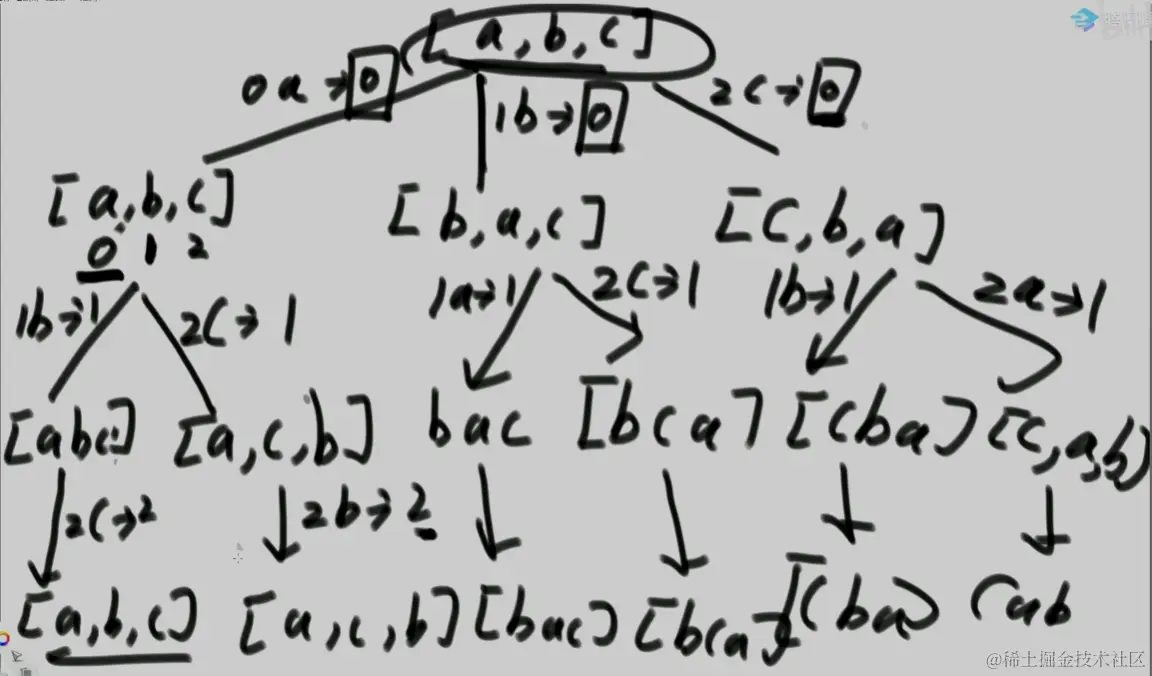 [a,b,c]
0a→0
1b→0
2c→0
[a,b,c]
[b,a,c]
[c,b,a]
0 1 2
1b→1
2c→1
1a→1
2c→1
1b→1
2a→1
[abc]
[a,c,b]
bac
[bca]
[cba]
[c,a,b]
2c→2
2b→2
[a,b,c]
[a,c,b]
[bac]
[bca]
[cba]
cab
@稀土掘金技术社区